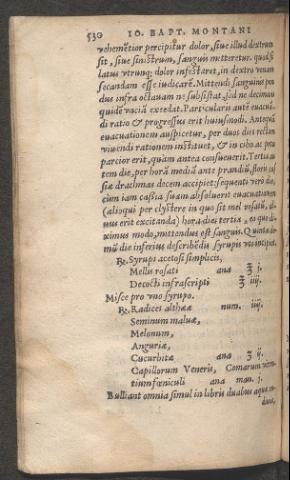 530 IO. BAPT. MONTANI
vehemẽtior percipitur dolor, siue illud dextrum
sit, siue sinistrum, sanguis mitteretur. quòd si
latus vtrunq; dolor infestaret, in dextro venam
secandam esse iudicarẽ. Mittendi sanguinis pon
dus infra octauam nẽ subsistat, sed ne decimam
quidẽ vnciã excedat. Particularis autẽ euacuã
di ratio & progressus erit huiusmodi. Antequã
euacuationem auspicetur, per duos dies rectam
viuendi rationem instituet, & in cibo ac potu
parcior erit, quàm antea consueuerit. Tertia au
tem die, per horã mediã ante prandiũ, florũ cas
siæ drachmas decem accipiet: sequenti verò die,
cùm iam cassia suam absoluerit euacuationem
(alioqui per clystere in quo sit mel rosatũ, al-
uus erit excitanda) hora die tertia, eo quo di-
ximus modo, mittendus est sanguis. Quinta de-
mũ die inferius describẽdis syrupis vti incipiet.
℞. Syrupi acetosi simplicis,
Mellis rosati ana ℥ j.
Decocti infrascripti ℥ iiij.
Misce pro vno syrupo.
℞. Radices altheæ num. iiij.
Seminum maluæ,
Melonum,
Anguriæ,
Cucurbitæ ana ℥ ij.
Capillorum Veneris, Comarum
tium fœniculi ana man. j.
Bulliant omnia simul in libris duabus aquæ